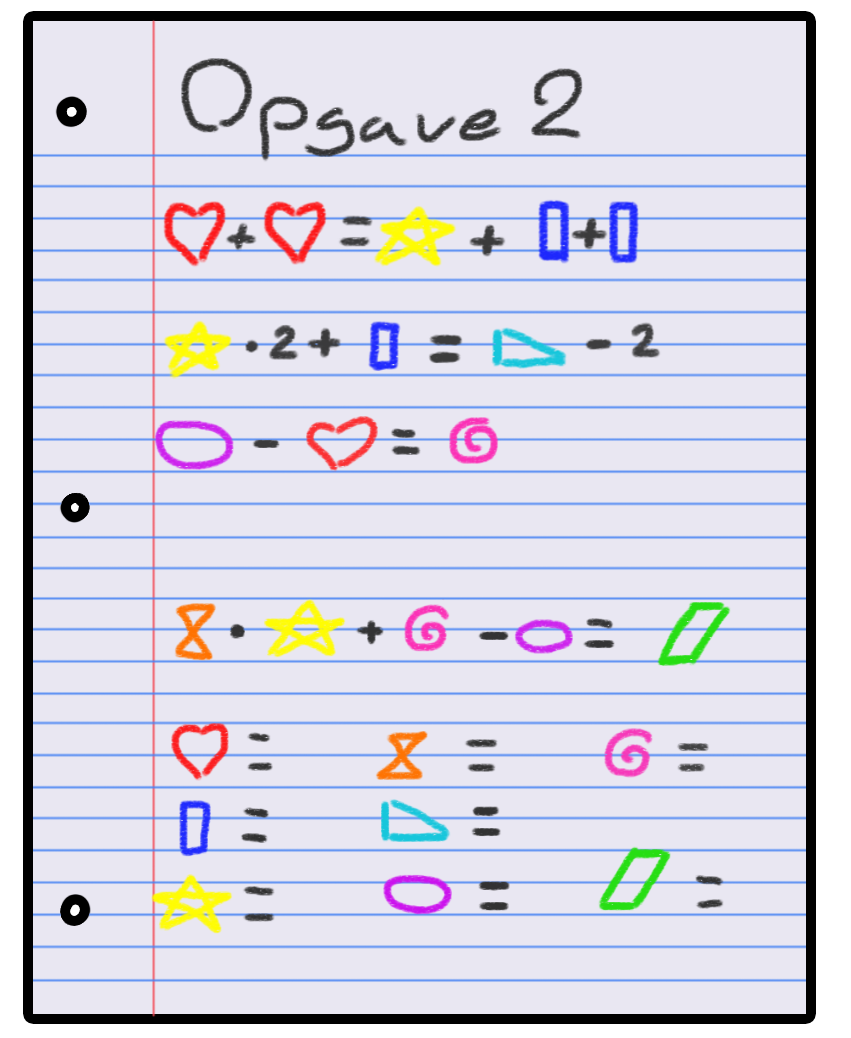 Opgave 2
+ = + +
· 2 + = - 2
- =
· + - =
= = =
= =
= = =